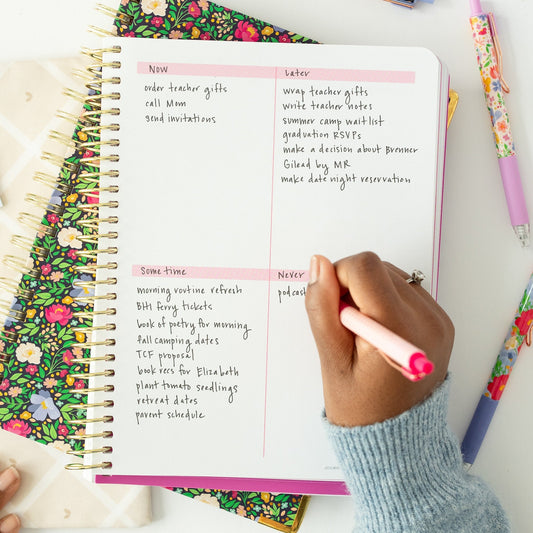 Now
order teacher gifts
call Mom
send invitations
Later
wrap teacher gifts
write teacher notes
summer camp waitlist
graduation RSVPs
make a decision about Brenner
Gilead by MR
make date night reservation
Sometime
morning routine refresh
BHI ferry tickets
book of poetry for morning
fall camping dates
TCF proposal
book recs for Elizabeth
plant tomato seedlings
retreat dates
parent schedule
Never
podcas